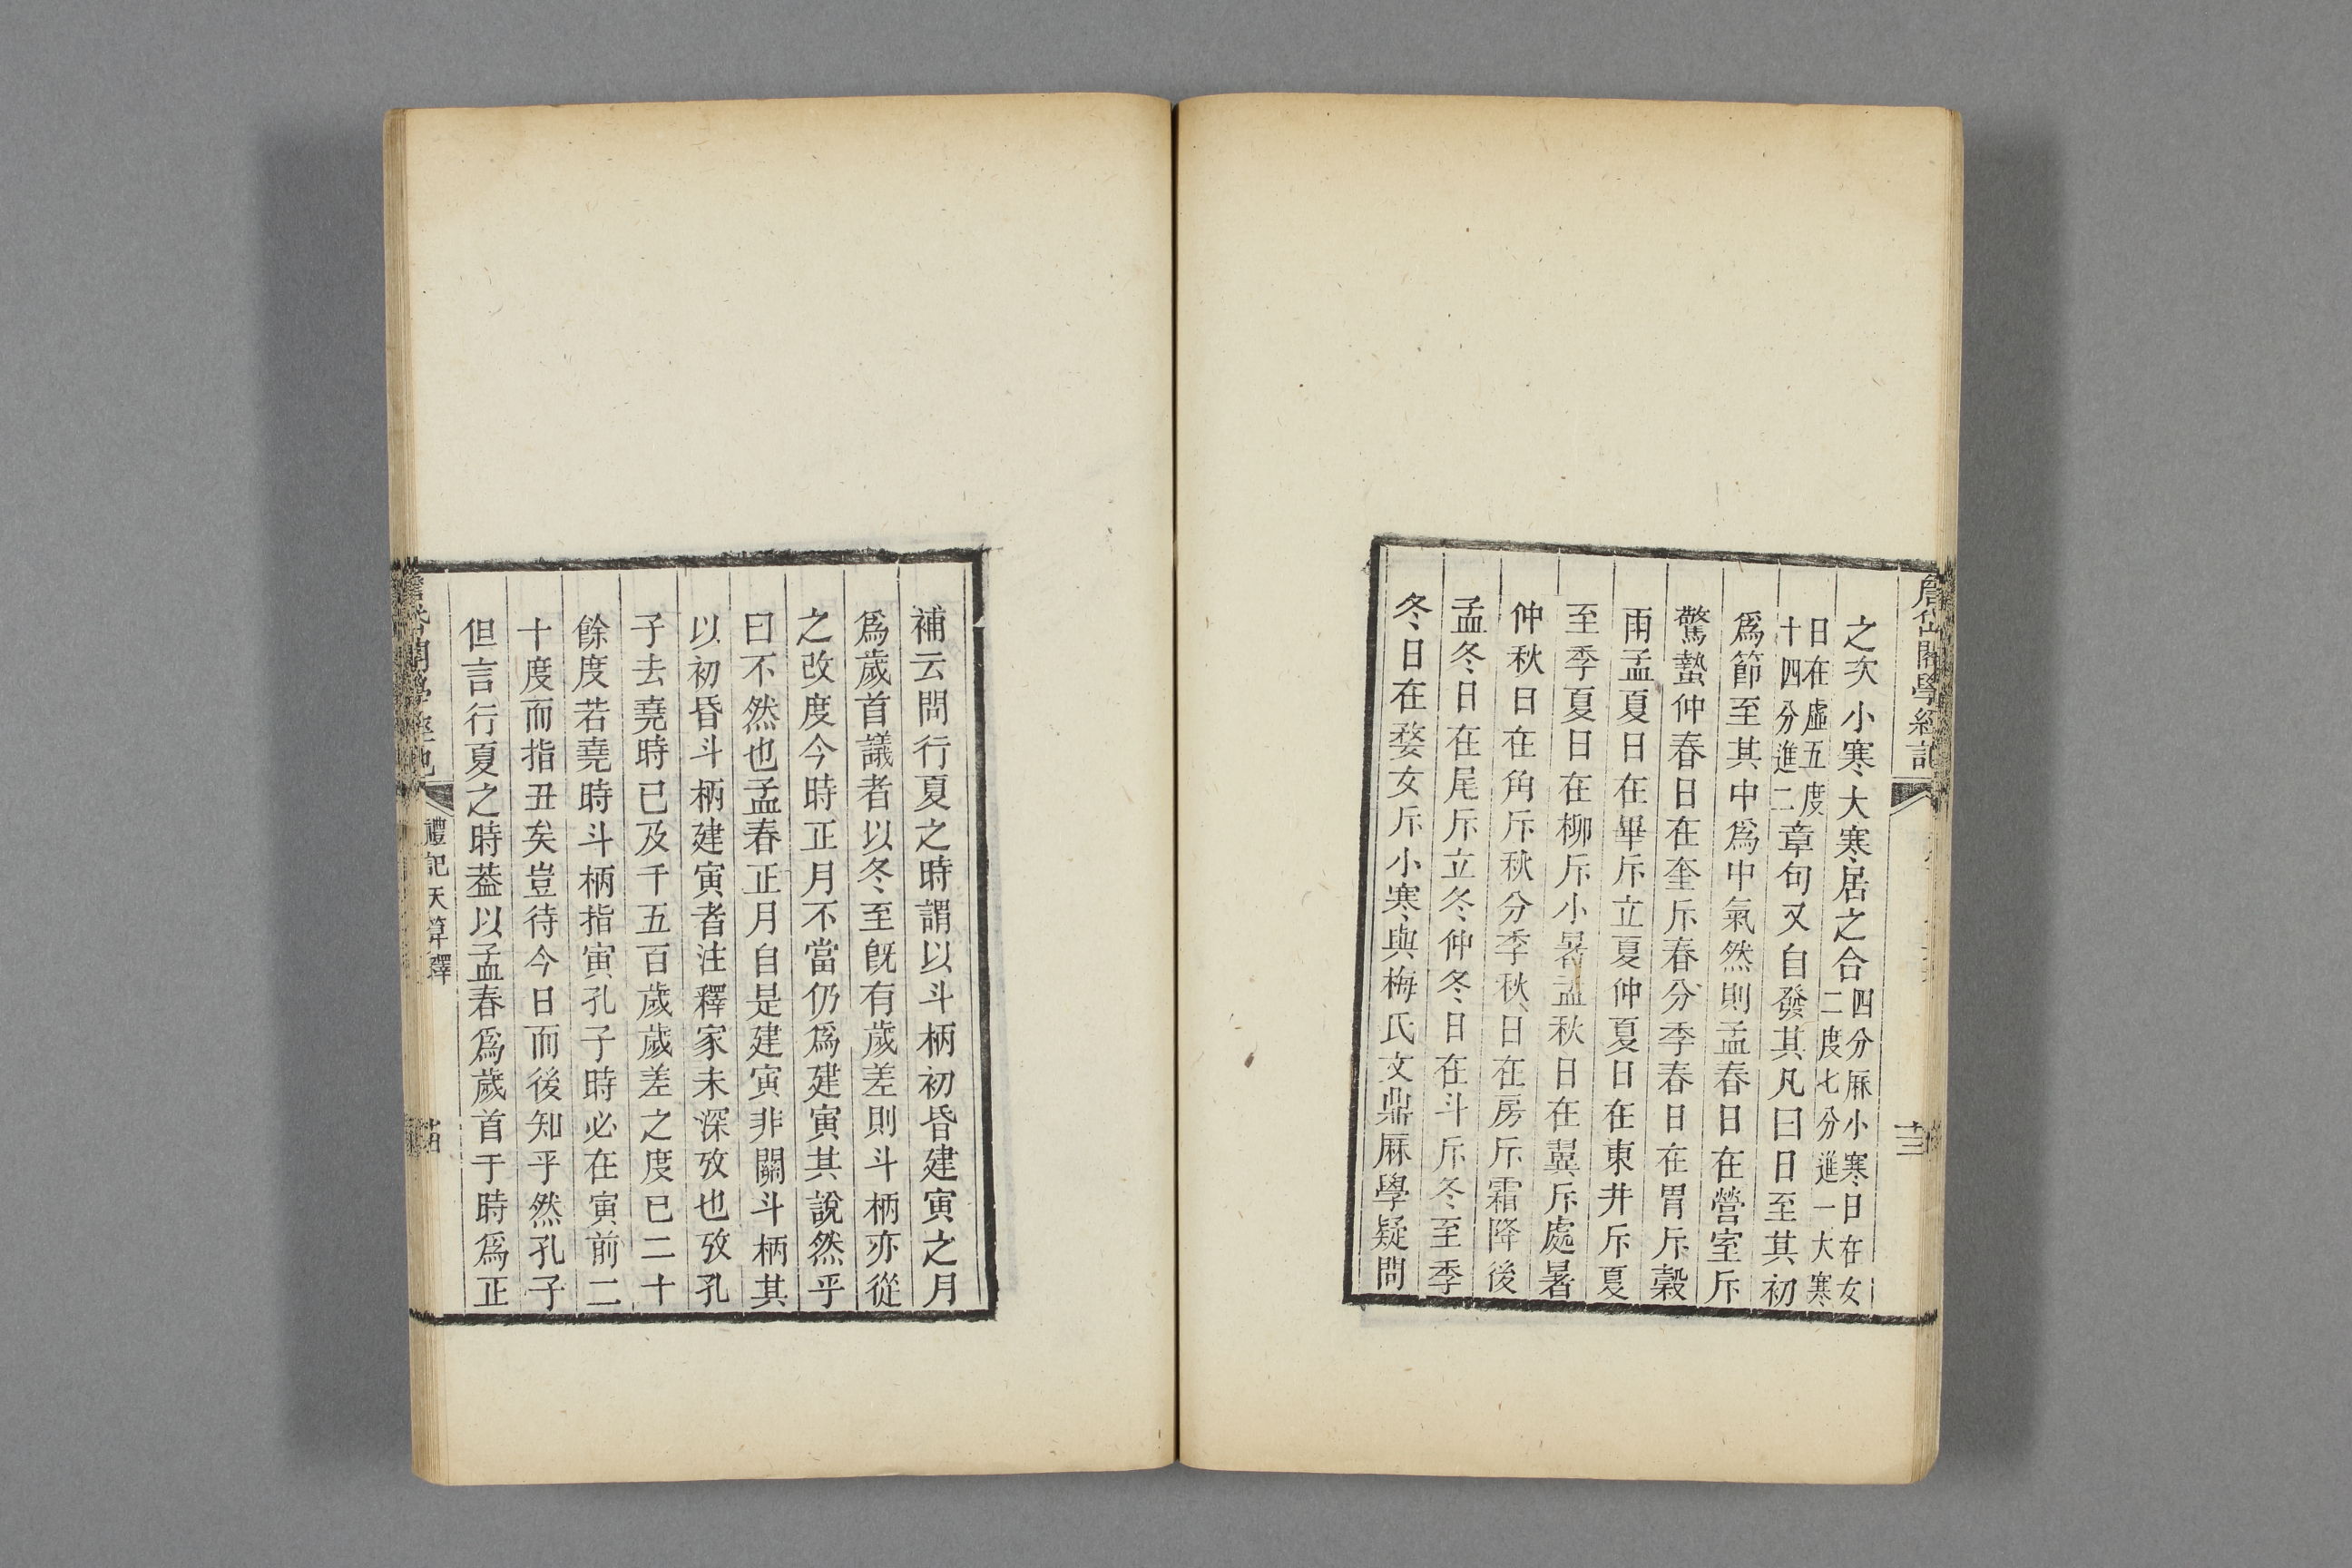 之次小寒大寒居之合四分厤小寒日在女
二度七分進一大寒
日在虛五度
十四分進二章句又自發其凡曰日至其初
爲節至其中爲中氣然則孟春日在營室斥
驚蟄仲春日在奎斥春分季春日在胃斥榖
雨孟夏日在畢斥立夏仲夏日在東井斥夏
至季夏日在柳斥小暑孟秋日在翼斥處暑
仲秋日在角斥秋分季秋日在房斥霜降後
孟冬日在尾斥立冬仲冬日在斗斥冬至季
冬日在婺女斥小寒與梅氏文鼎厤學疑問
補云問行夏之時謂以斗柄初昏建寅之月
爲歲首議者以冬至旣有歲差則斗柄亦從
之改度今時正月不當仍爲建寅其說然乎
曰不然也孟春正月自是建寅非關斗柄其
以初昏斗柄建寅者注釋家未深攷也攷孔
子去堯時已及千五百歲歲差之度已二十
餘度若堯時斗柄指寅孔子時必在寅前二
十度而指丑矣豈待今日而後知乎然孔子
但言行夏之時葢以孟春爲歲首于時爲正
禮記天算釋